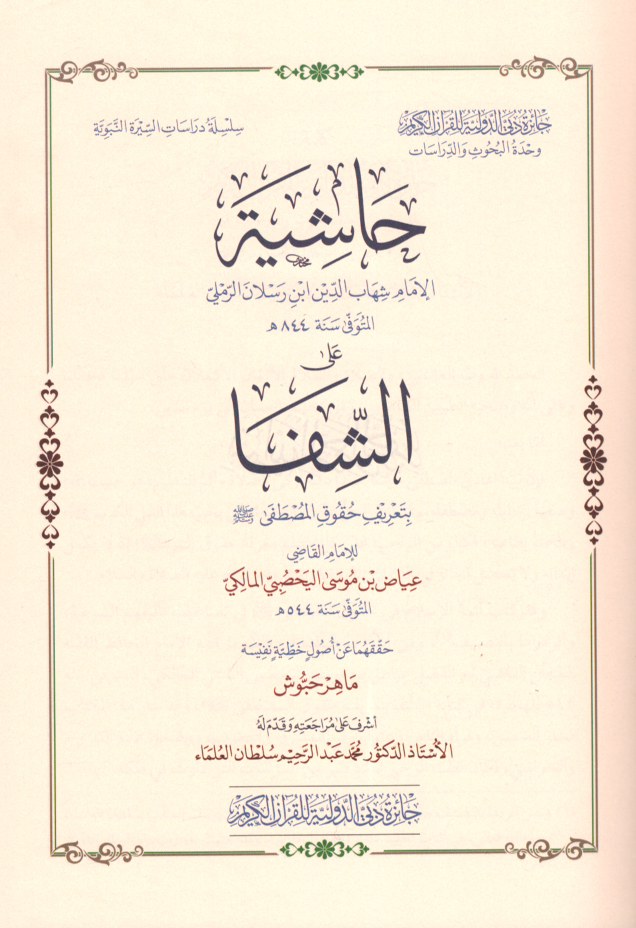 جَائِزَةُ دُبَيَ الدَّوْلِيَّةُ لِلْقُرْآنِ الْكَرِيمِ
سِلْسِلَةُ دِرَاسَاتِ السِّيْرَةِ النَّبَوِيَّةِ
وَحْدَةُ البُحُوثِ وَالدِّرَاسَات
حَاشِيَة
الإِمَامِ شِهَابِ الدِّيْنِ ابْنِ رَسْلَانَ الرَّمْلِيّ
المُتَوَفَّى سَنَة ٨٤٤ هـ
عَلَى
الشِّفَا
بِتَعْرِيْفِ حُقُوقِ المُصْطَفَى ﷺ
لِلإِمَامِ القَاضِي
عِيَاضِ بْنِ مُوسَى اليَحْصُبِيّ المَالِكِيّ
المُتَوَفَّى سَنَة ٥٤٤ هـ
حَقَّقَهُمَا عَنْ أُصُولٍ خَطِّيَّةٍ نَفِيْسَة
مَاهِر حَبُّوش
أَشْرَفَ عَلَى مُرَاجَعَتِهِ وَقَدَّمَ لَهُ
الأُسْتَاذ الدّكتُور مُحَمَّد عَبْد الرَّحِيْم سُلْطَان العُلَمَاء
جَائِزَةُ دُبَيَ الدَّوْلِيَّةُ لِلْقُرْآنِ الْكَرِيمِ